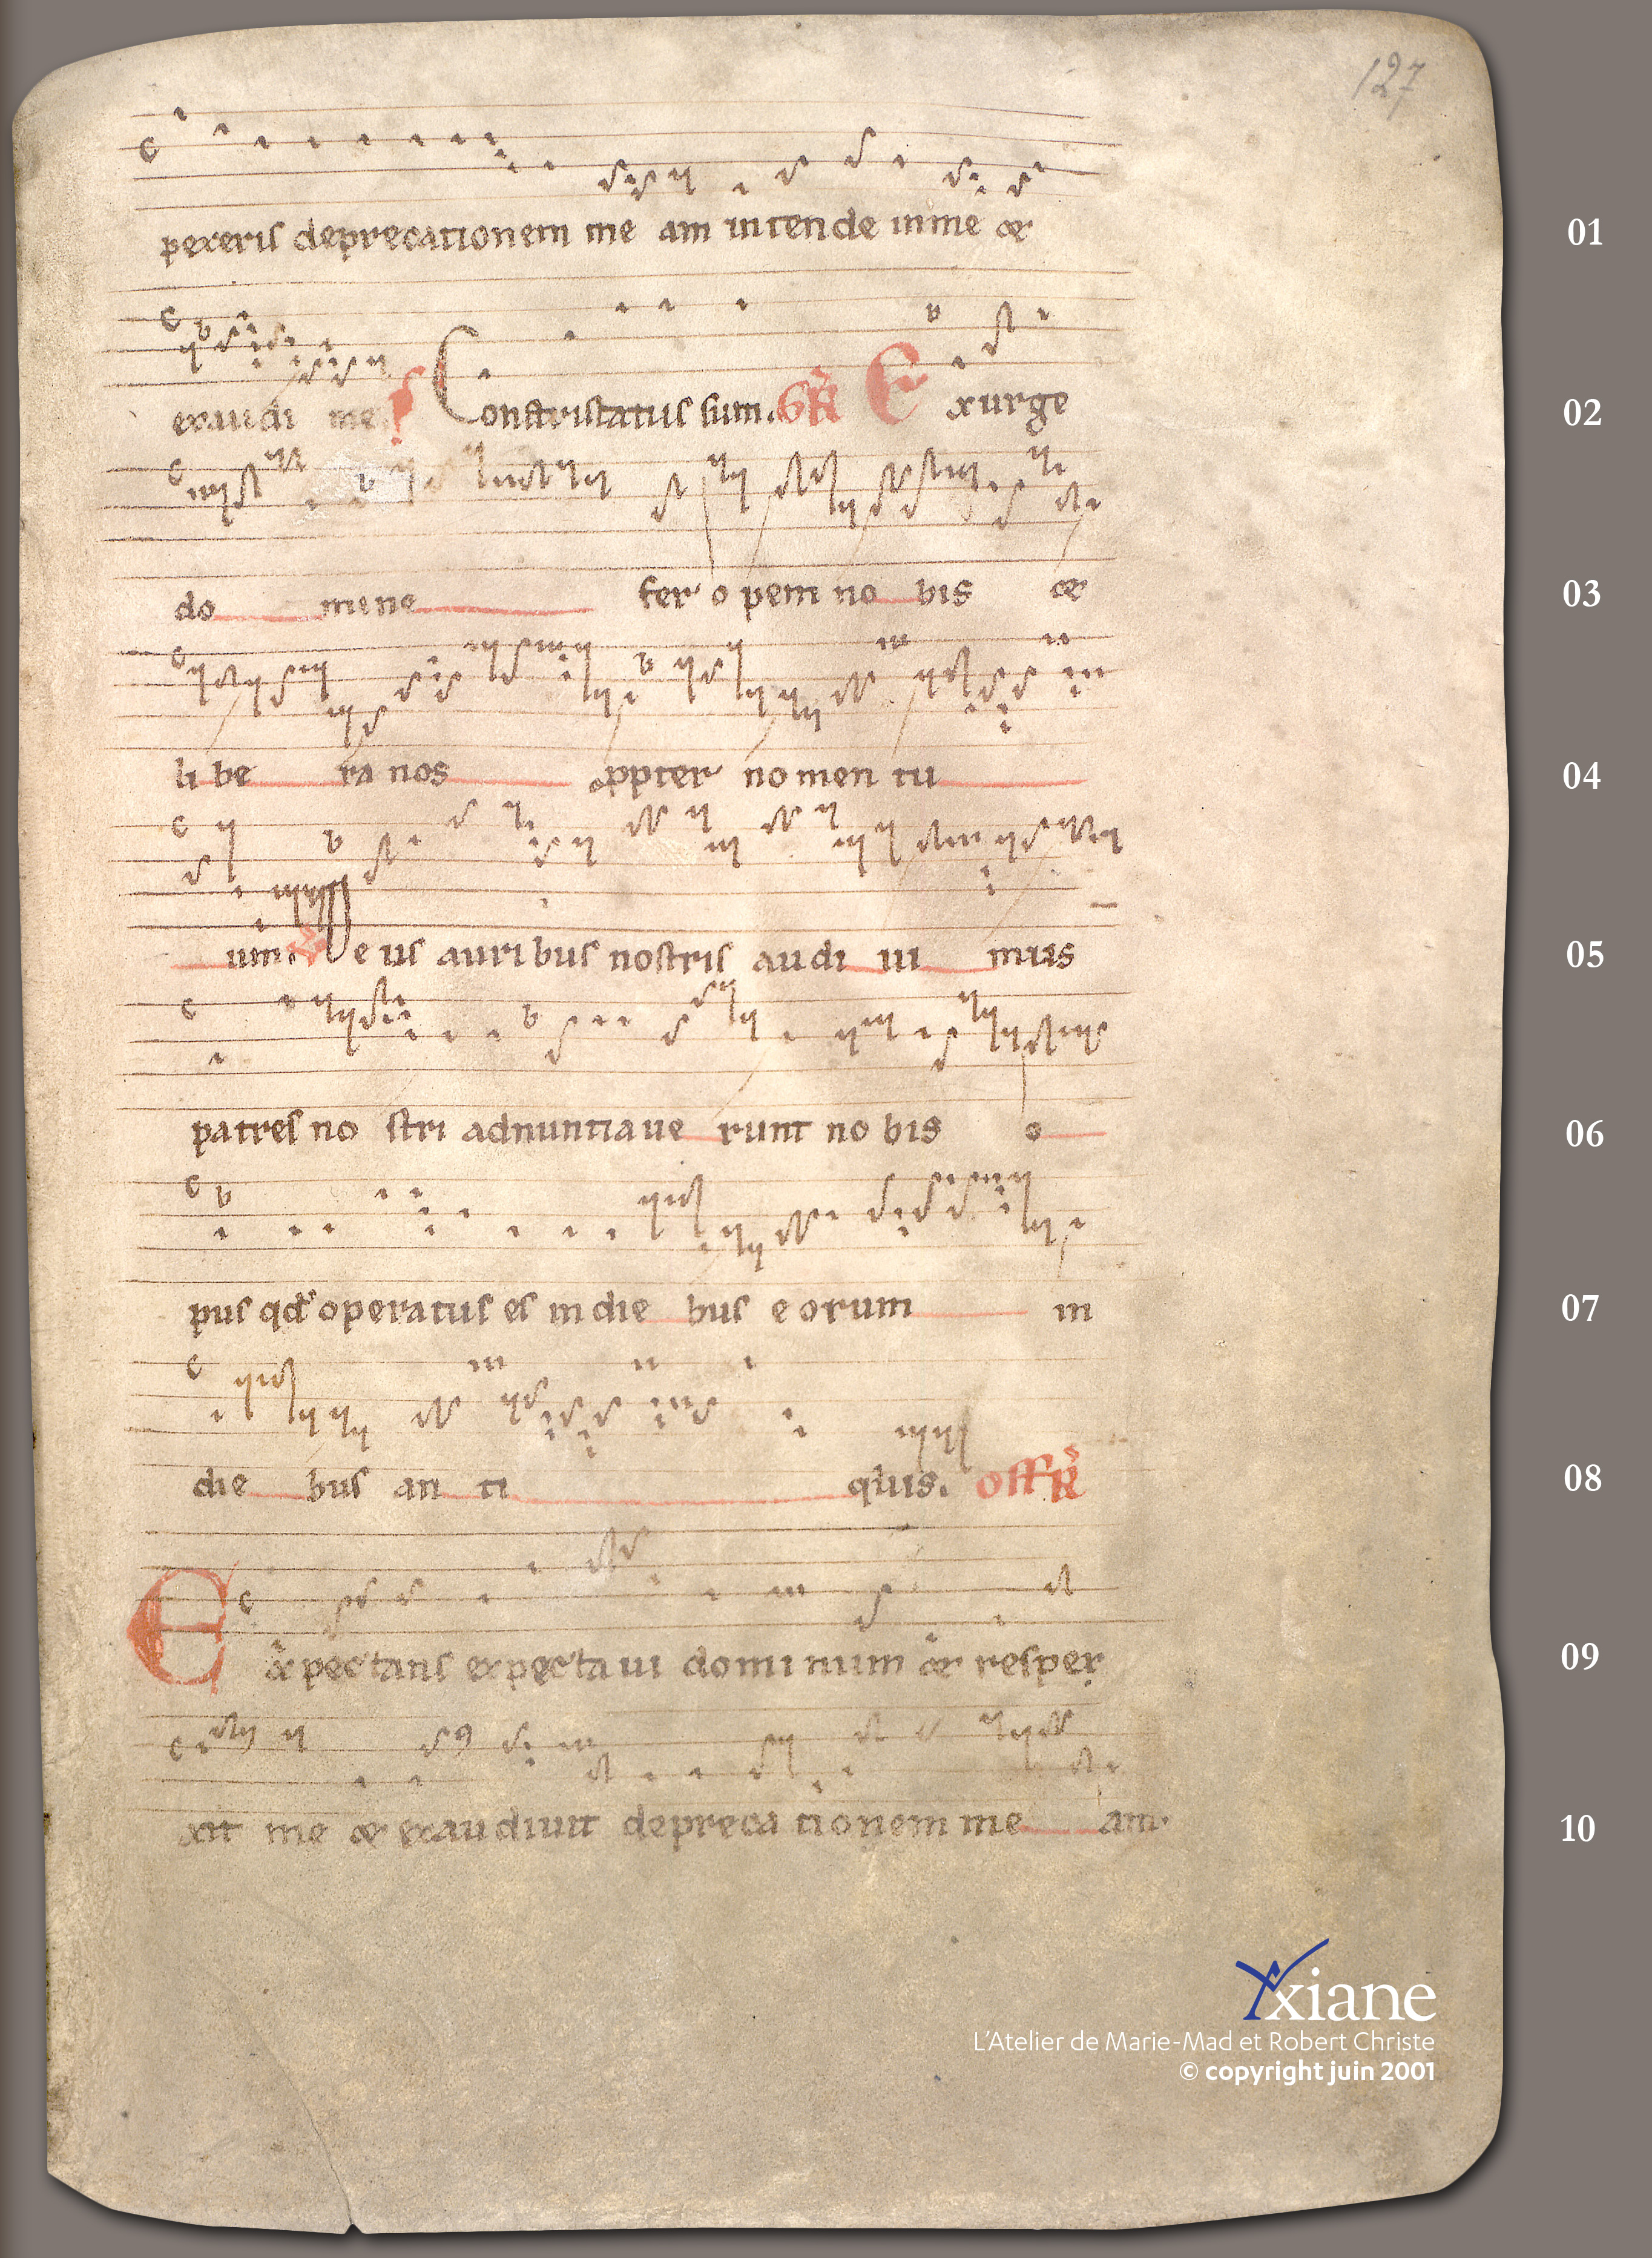 127
pexeris deprecationem me am intende in me &
01
exaudi me. Contristatus sum. GR Exurge
02
do mine fer opem no bis &
03
li be ra nos ppter nomen tu
04
um. Deus auribus nostris audi ui mus
05
patres no stri adnuntiaue runt no bis o
06
pus qd operatus es in die bus eorum in
07
die bus an ti quis. OFFR
08
Expectans expectaui dominum & respex
09
xit me & exaudiuit depreca tionem me am.
10
Yxiane
L'Atelier de Marie-Mad et Robert Christe
© copyright juin 2001